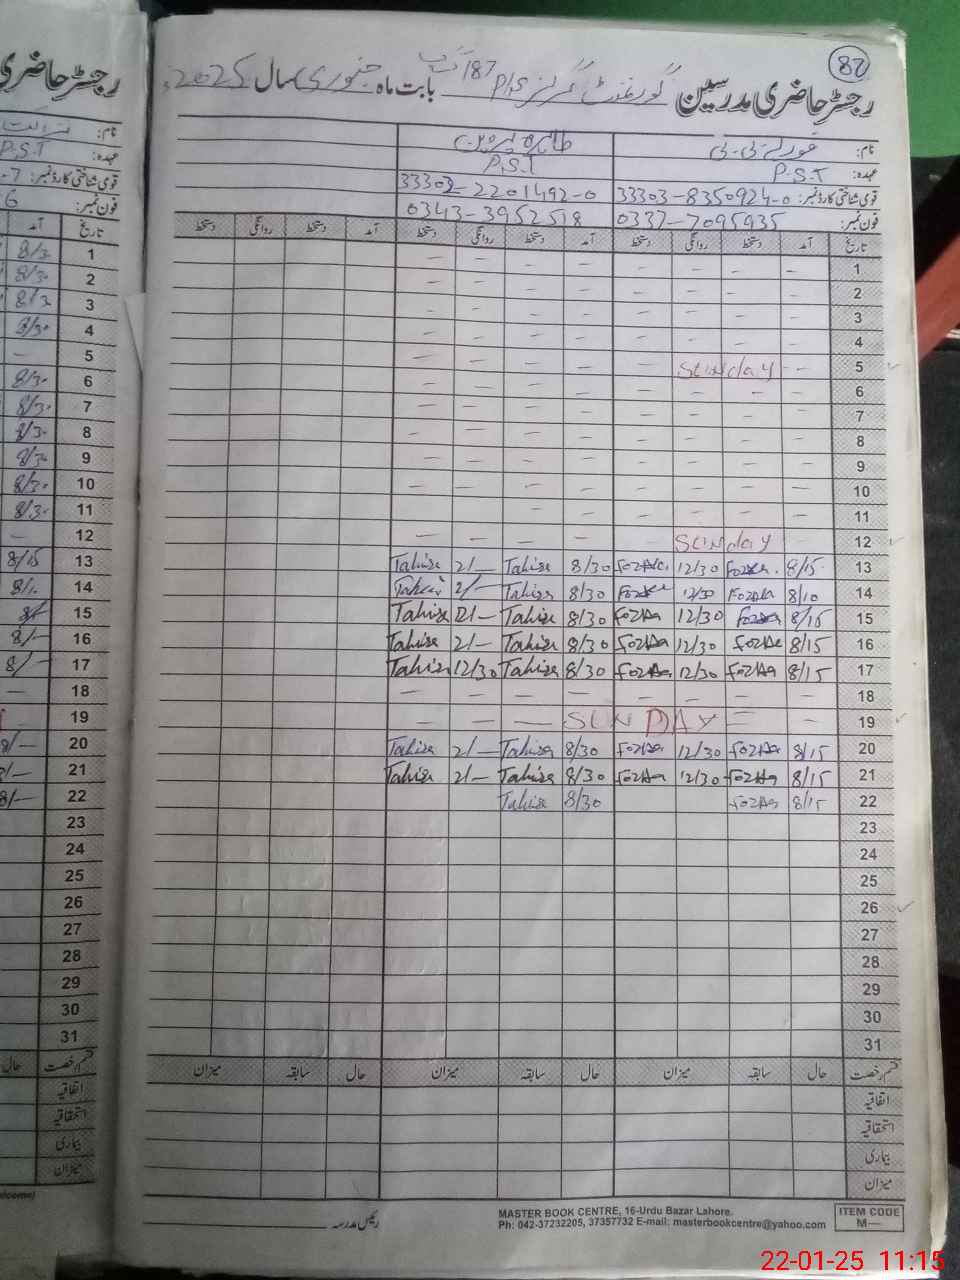 82
رجسٹر حاضری مدرسین گورنمنٹ گرلز P/S 187 بابت ماہ جنوری سال 2025ء
نام: فوزیہ بی بی طاہرہ پروین
عہدہ: P.S.T P.S.T
قومی شناختی کارڈ نمبر: 33303-8350924-0 33303-2201492-0
فون نمبر: 0337-7095935 0343-3952518
تاریخ آمد دستخط روانگی دستخط آمد دستخط روانگی دستخط آمد دستخط روانگی دستخط
1 — — — — — — —
2 — — — — — — —
3 — — — — — — —
4 — — — — — — —
5 — Sunday — — — —
6 — — — — — — —
7 — — — — — — —
8 — — — — — — —
9 — — — — — — —
10 — — — — — — —
11 — — — — — — —
12 — Sunday — — — —
13 8/15 Fozia 12/30 Fozia 8/30 Tahira 2/— Tahira
14 8/10 Fozia 12/30 Fozia 8/30 Tahira 2/— Tahira
15 8/15 Fozia 12/30 Fozia 8/30 Tahira 2/— Tahira
16 8/15 Fozia 12/30 Fozia 8/30 Tahira 2/— Tahira
17 8/15 Fozia 12/30 Fozia 8/30 Tahira 12/30 Tahira
18 — — — — — — —
19 — SUNDAY — — —
20 8/15 Fozia 12/30 Fozia 8/30 Tahira 2/— Tahira
21 8/15 Fozia 12/30 Fozia 8/30 Tahira 2/— Tahira
22 8/15 Fozia 8/30 Tahira
23
24
25
26
27
28
29
30
31
قسم رخصت حال سابقہ میزان حال سابقہ میزان حال سابقہ میزان
اتفاقیہ
استحقاقیہ
بیماری
میزان
رئیس مدرسہ
MASTER BOOK CENTRE, 16-Urdu Bazar Lahore.
Ph: 042-37232205, 37357732 E-mail: masterbookcentre@yahoo.com
ITEM CODE
M—
رجسٹر حاضری
نام:
عہدہ: P.S.T
قومی شناختی کارڈ نمبر: 7-
فون نمبر: 6
تاریخ آمد
1 8/30
2 8/30
3 8/30
4 8/30
5 —
6 8/30
7 8/30
8 8/30
9 8/30
10 8/30
11 8/30
12 —
13 8/15
14
15
16 8/—
17 8/—
18 —
19 —
20 8/—
21 8/—
22 8/—
23
24
25
26
27
28
29
30
31
قسم رخصت حال
اتفاقیہ
استحقاقیہ
بیماری
میزان
22-01-25 11:15